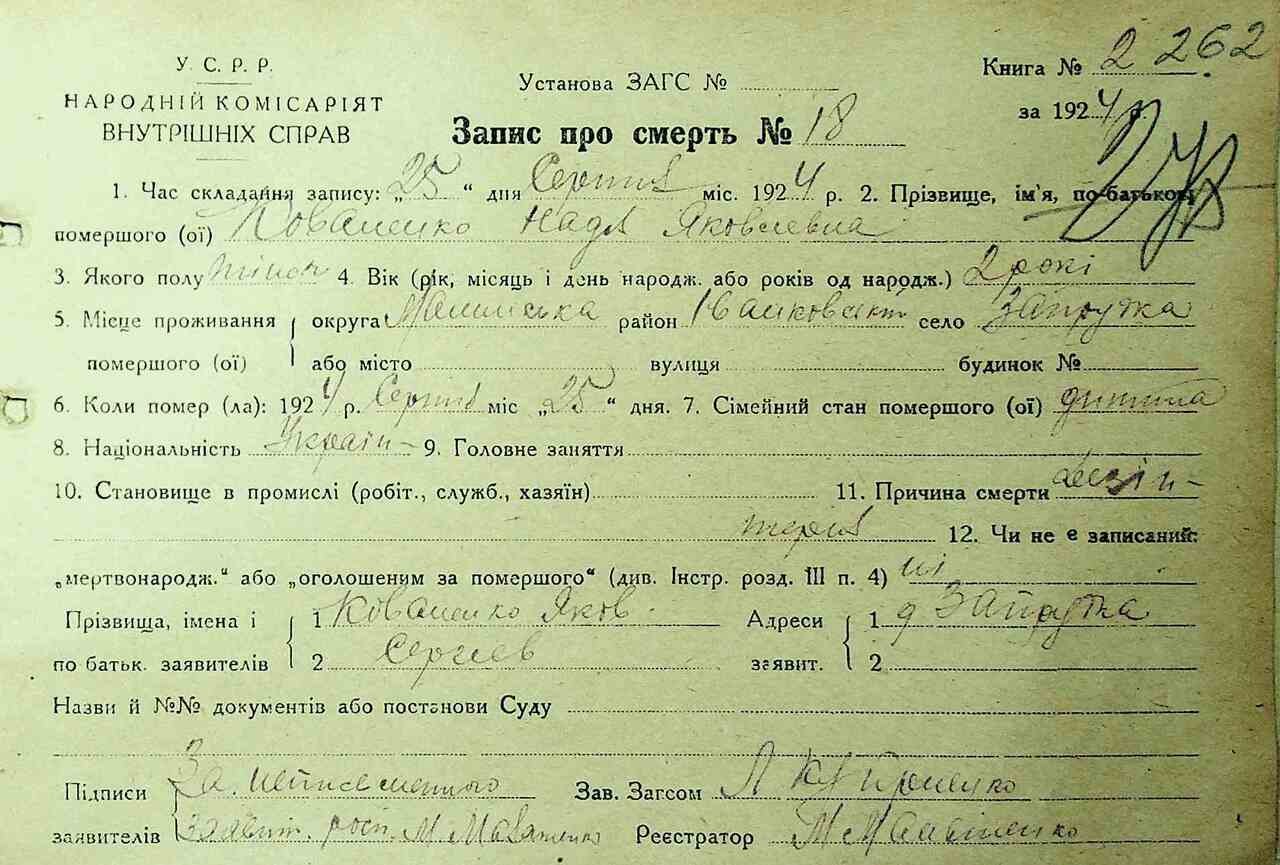 У. С. Р. Р.
НАРОДНІЙ КОМІСАРІЯТ
ВНУТРІШНІХ СПРАВ
Установа ЗАГС №
Книга № 2 262
за 1924 р.
Запис про смерть № 18
1. Час складання запису: „25“ дня Серпня міс. 1924 р. 2. Прізвище, ім'я, по-батькові
помершого (ої) Коваленко Надя Яковлевна
3. Якого полу жіноч 4. Вік (рік, місяць і день народж. або років од народж.) 2 рокі
5. Місце проживання округа район село Запрудка
помершого (ої) або місто вулиця будинок №
6. Коли помер (ла): 1924 р. Серпня міс „25“ дня. 7. Сімейний стан помершого (ої) дитина
8. Національність Україн- 9. Головне заняття
10. Становище в промислі (робіт., служб., хазяїн) 11. Причина смерти дезін-
терія 12. Чи не є записаний:
„мертвонародж.“ або „оголошеним за помершого“ (див. Інстр. розд. III п. 4) ні
Прізвища, імена і 1 Коваленко Яков Адреси 1 д Запрудка
по батьк. заявителів 2 Сергіев заявит. 2
Назви й №№ документів або постанови Суду
Підписи За неписменного Зав. Загсом
заявителів заявит. росп. М Реєстратор М